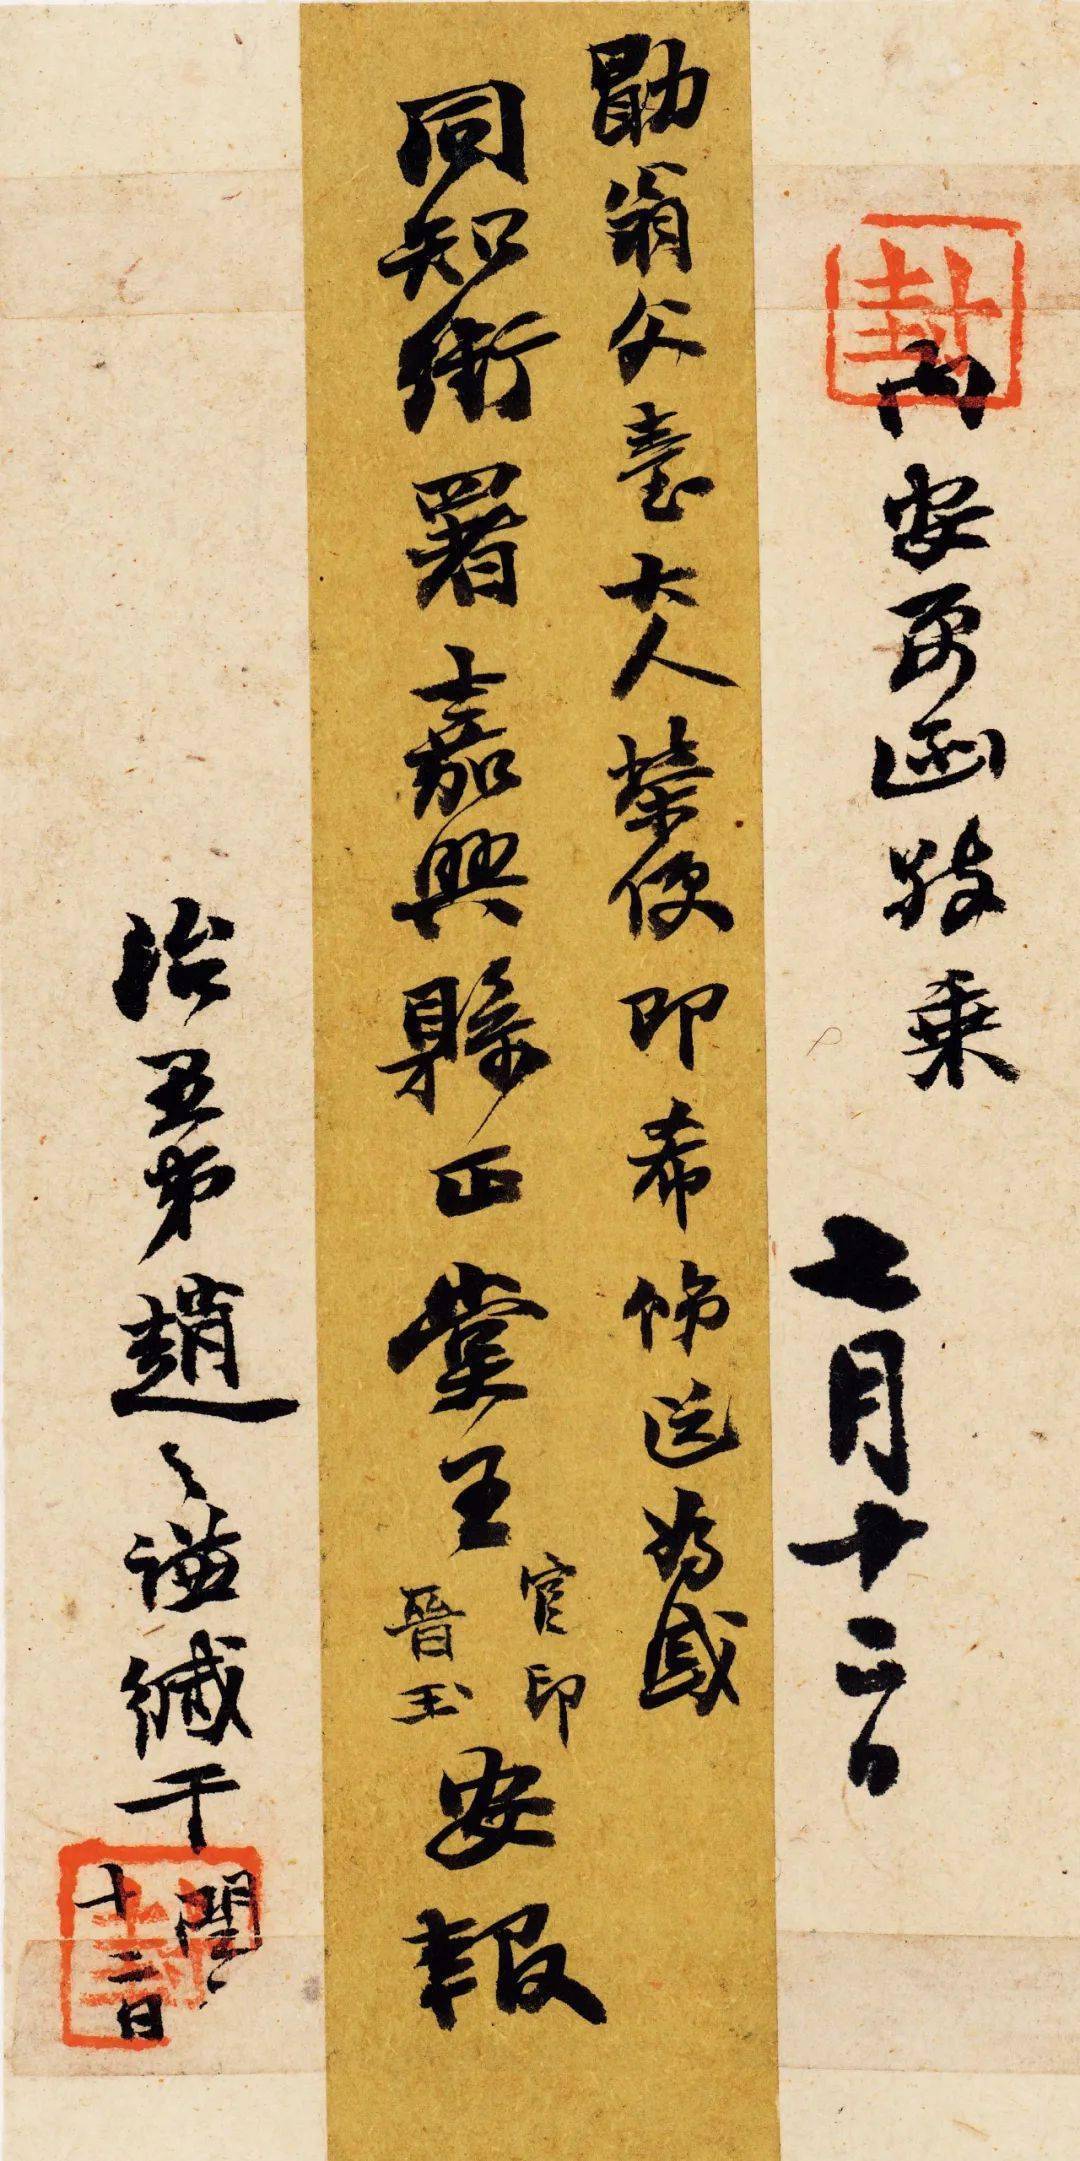 封
內安要函敬乘
七月十二日
勖翁父臺大人榮便即希飭送為感
同知銜署嘉興縣正堂王
官印
晉玉
安報
治愚弟趙之謙緘干
閏
十二日
封